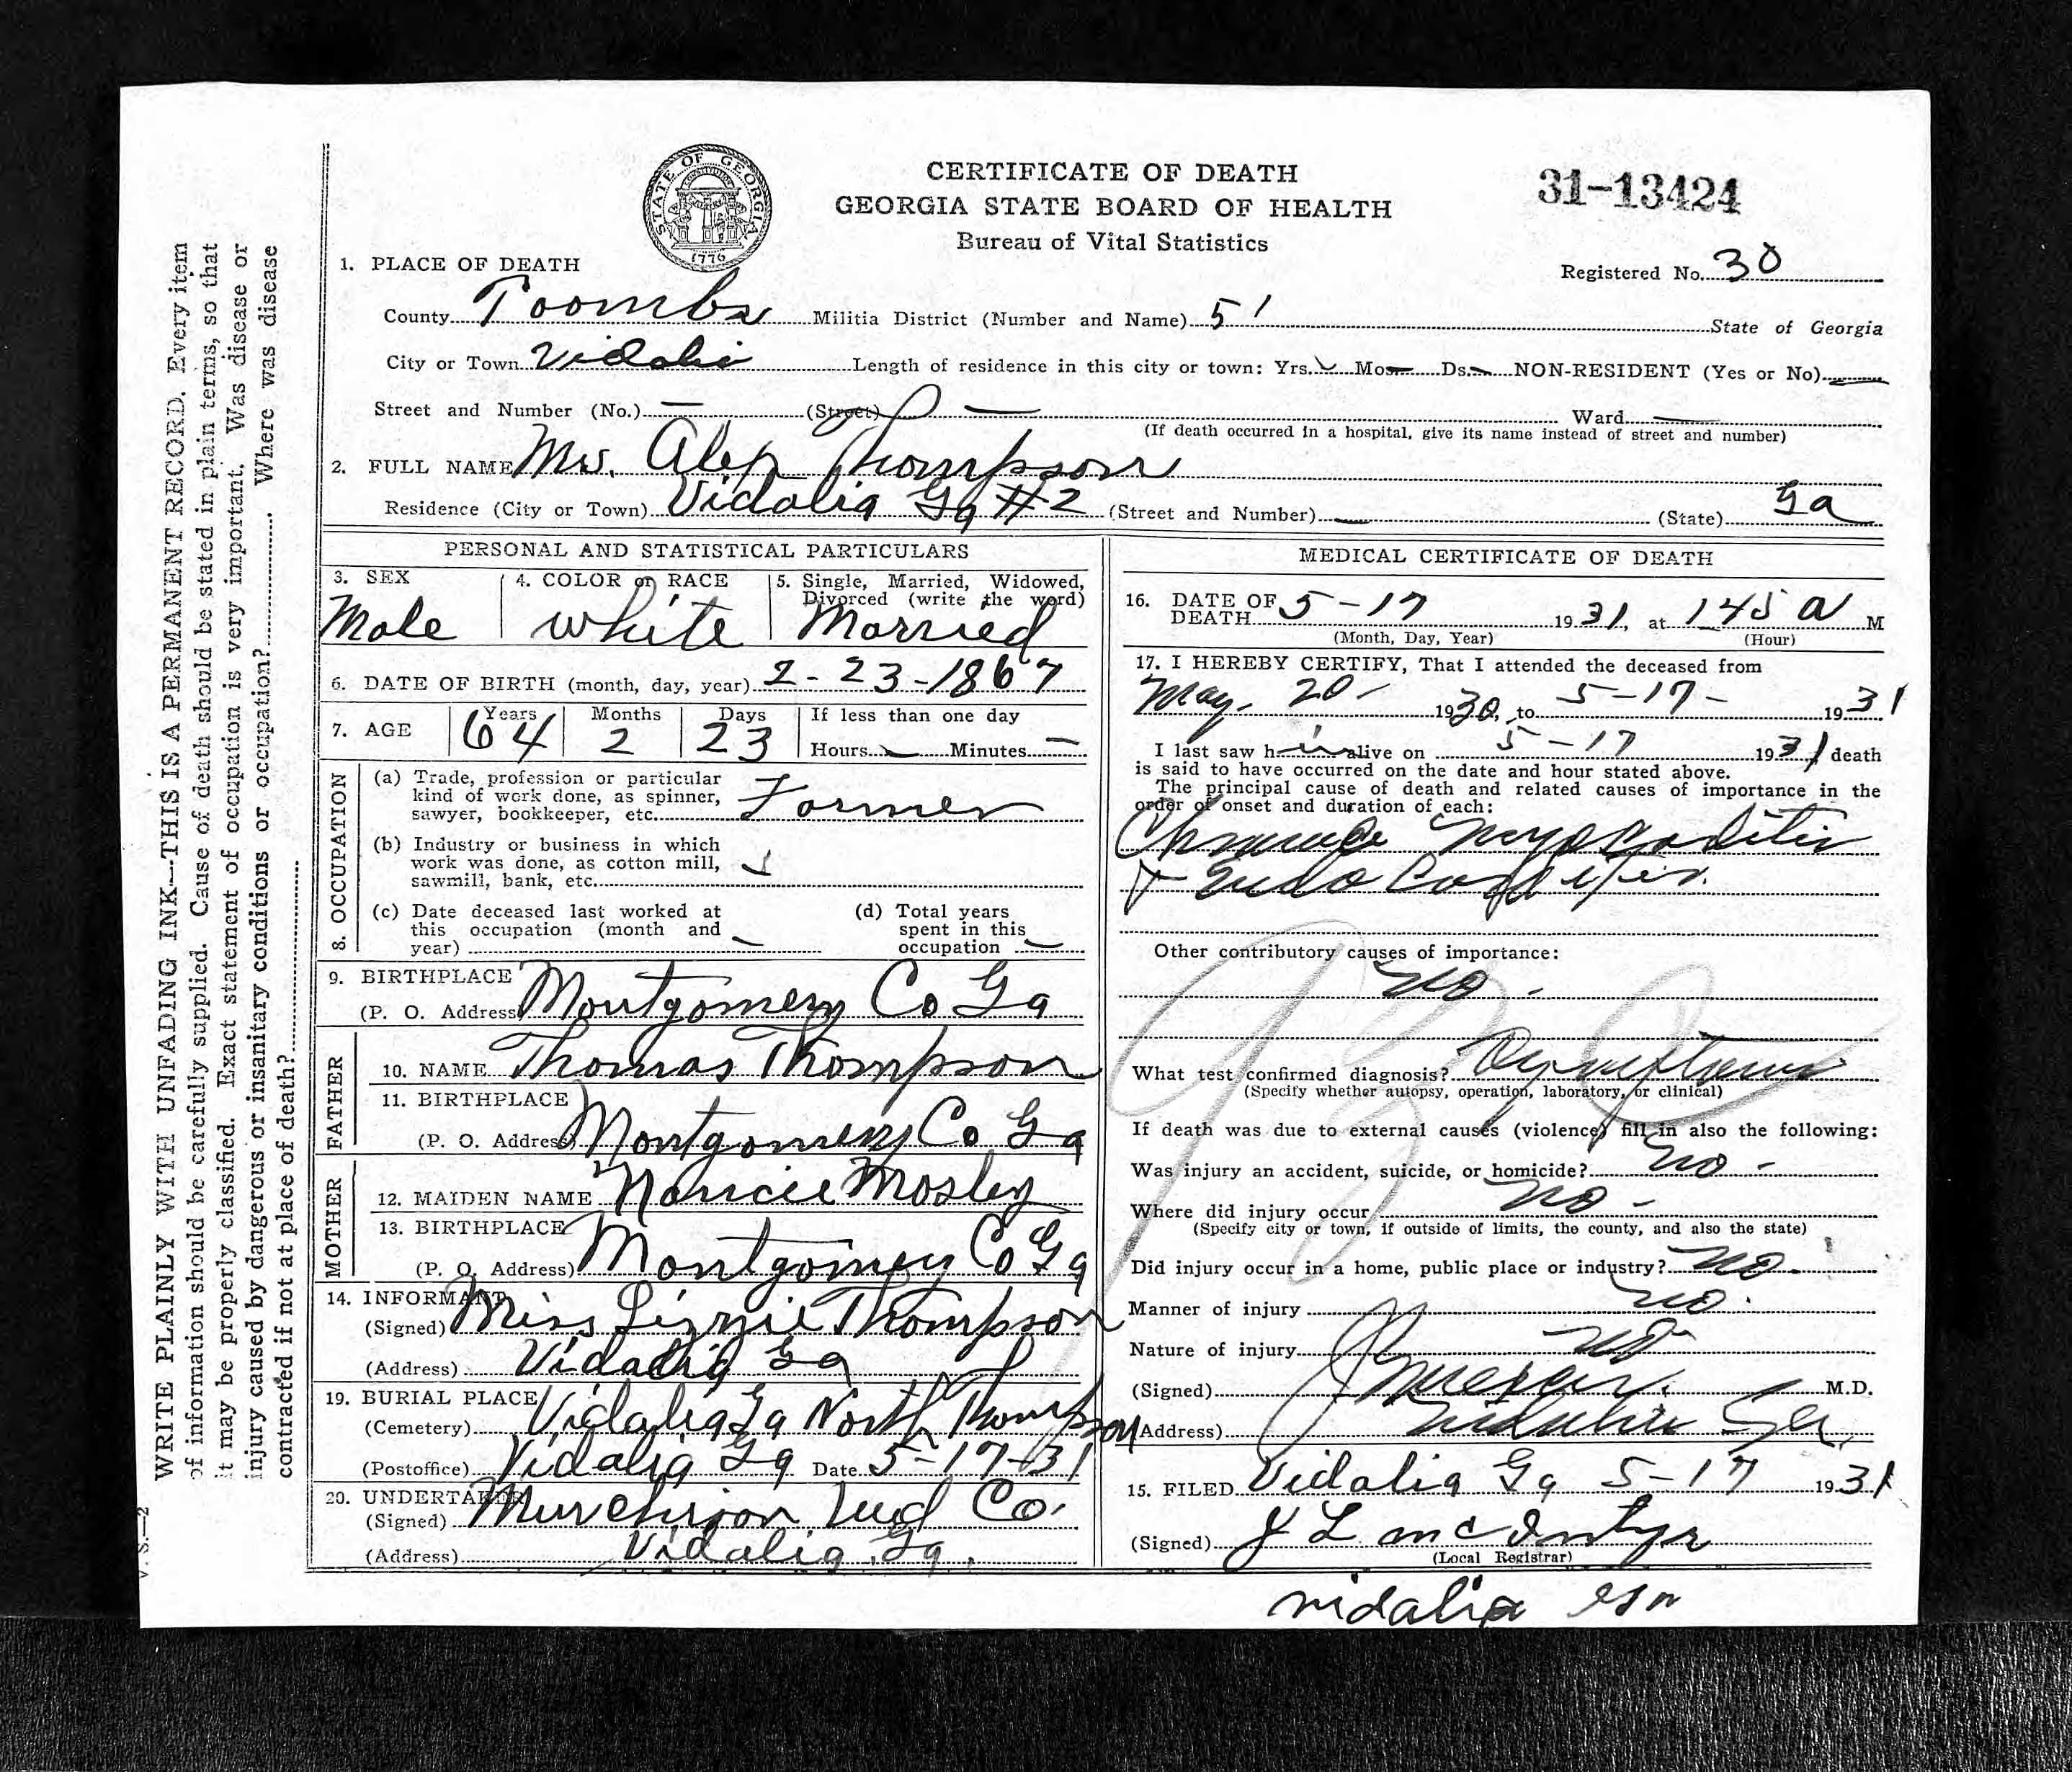 CERTIFICATE OF DEATH
GEORGIA STATE BOARD OF HEALTH
Bureau of Vital Statistics
STATE OF GEORGIA
CONSTITUTION
1776
31-13424
Registered No. 30
1. PLACE OF DEATH
County Toombs Militia District (Number and Name) 51 State of Georgia
City or Town Vidalia Length of residence in this city or town: Yrs. Mos. Ds. NON-RESIDENT (Yes or No)
Street and Number (No.) — (Street) — Ward —
(If death occurred in a hospital, give its name instead of street and number)
2. FULL NAME Mr. Alex Thompson
Residence (City or Town) Vidalia Ga #2 (Street and Number) — (State) Ga
PERSONAL AND STATISTICAL PARTICULARS
3. SEX Male
4. COLOR or RACE white
5. Single, Married, Widowed, Divorced (write the word) Married
6. DATE OF BIRTH (month, day, year) 2-23-1867
7. AGE Years 64 Months 2 Days 23 If less than one day
Hours — Minutes —
8. OCCUPATION
(a) Trade, profession or particular
kind of work done, as spinner,
sawyer, bookkeeper, etc. Farmer
(b) Industry or business in which
work was done, as cotton mill,
sawmill, bank, etc.
(c) Date deceased last worked at
this occupation (month and
year) —
(d) Total years
spent in this
occupation —
9. BIRTHPLACE
(P. O. Address) Montgomery Co Ga
FATHER
10. NAME Thomas Thompson
11. BIRTHPLACE
(P. O. Address) Montgomery Co Ga
MOTHER
12. MAIDEN NAME Nancie Mosley
13. BIRTHPLACE
(P. O. Address) Montgomery Co Ga
14. INFORMANT
(Signed) Miss Lizzie Thompson
(Address) Vidalia Ga
19. BURIAL PLACE
(Cemetery) Vidalia Ga North Thompson
(Postoffice) Vidalia Ga Date 5-17-31
20. UNDERTAKER
(Signed) Murchison Co.
(Address) Vidalia, Ga.
MEDICAL CERTIFICATE OF DEATH
16. DATE OF
DEATH 5-17 1931, at 145 a M
(Month, Day, Year) (Hour)
17. I HEREBY CERTIFY, That I attended the deceased from
May. 20- 1930, to 5-17- 1931
I last saw him alive on 5-17 1931 death
is said to have occurred on the date and hour stated above.
The principal cause of death and related causes of importance in the
order of onset and duration of each:
Chronic
& Endo
Other contributory causes of importance:
no -
What test confirmed diagnosis? Symptoms
(Specify whether autopsy, operation, laboratory, or clinical)
If death was due to external causes (violence) fill in also the following:
Was injury an accident, suicide, or homicide? no -
Where did injury occur no -
(Specify city or town, if outside of limits, the county, and also the state)
Did injury occur in a home, public place or industry? no.
Manner of injury no.
Nature of injury no
(Signed) M.D.
(Address) Vidalia Ga.
15. FILED Vidalia Ga 5-17 1931
(Signed) J L McIntyre
(Local Registrar)
vidalia Ga
WRITE PLAINLY WITH UNFADING INK—THIS IS A PERMANENT RECORD. Every item
of information should be carefully supplied. Cause of death should be stated in plain terms, so that
it may be properly classified. Exact statement of occupation is very important. Was disease or
injury caused by dangerous or insanitary conditions or occupation? Where was disease
contracted if not at place of death?
V. S.—2